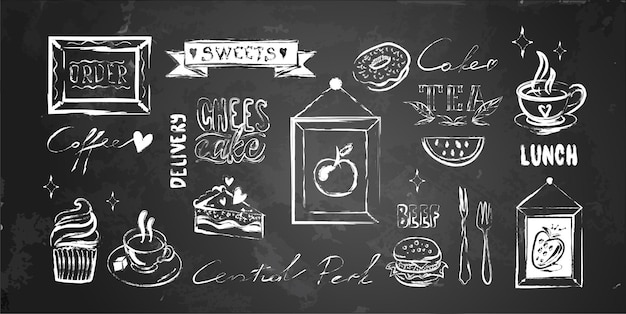 ORDER
SWEETS
Cakes
TEA
Coffee
DELIVERY
CHEES
cake
LUNCH
BEEF
Central Perk